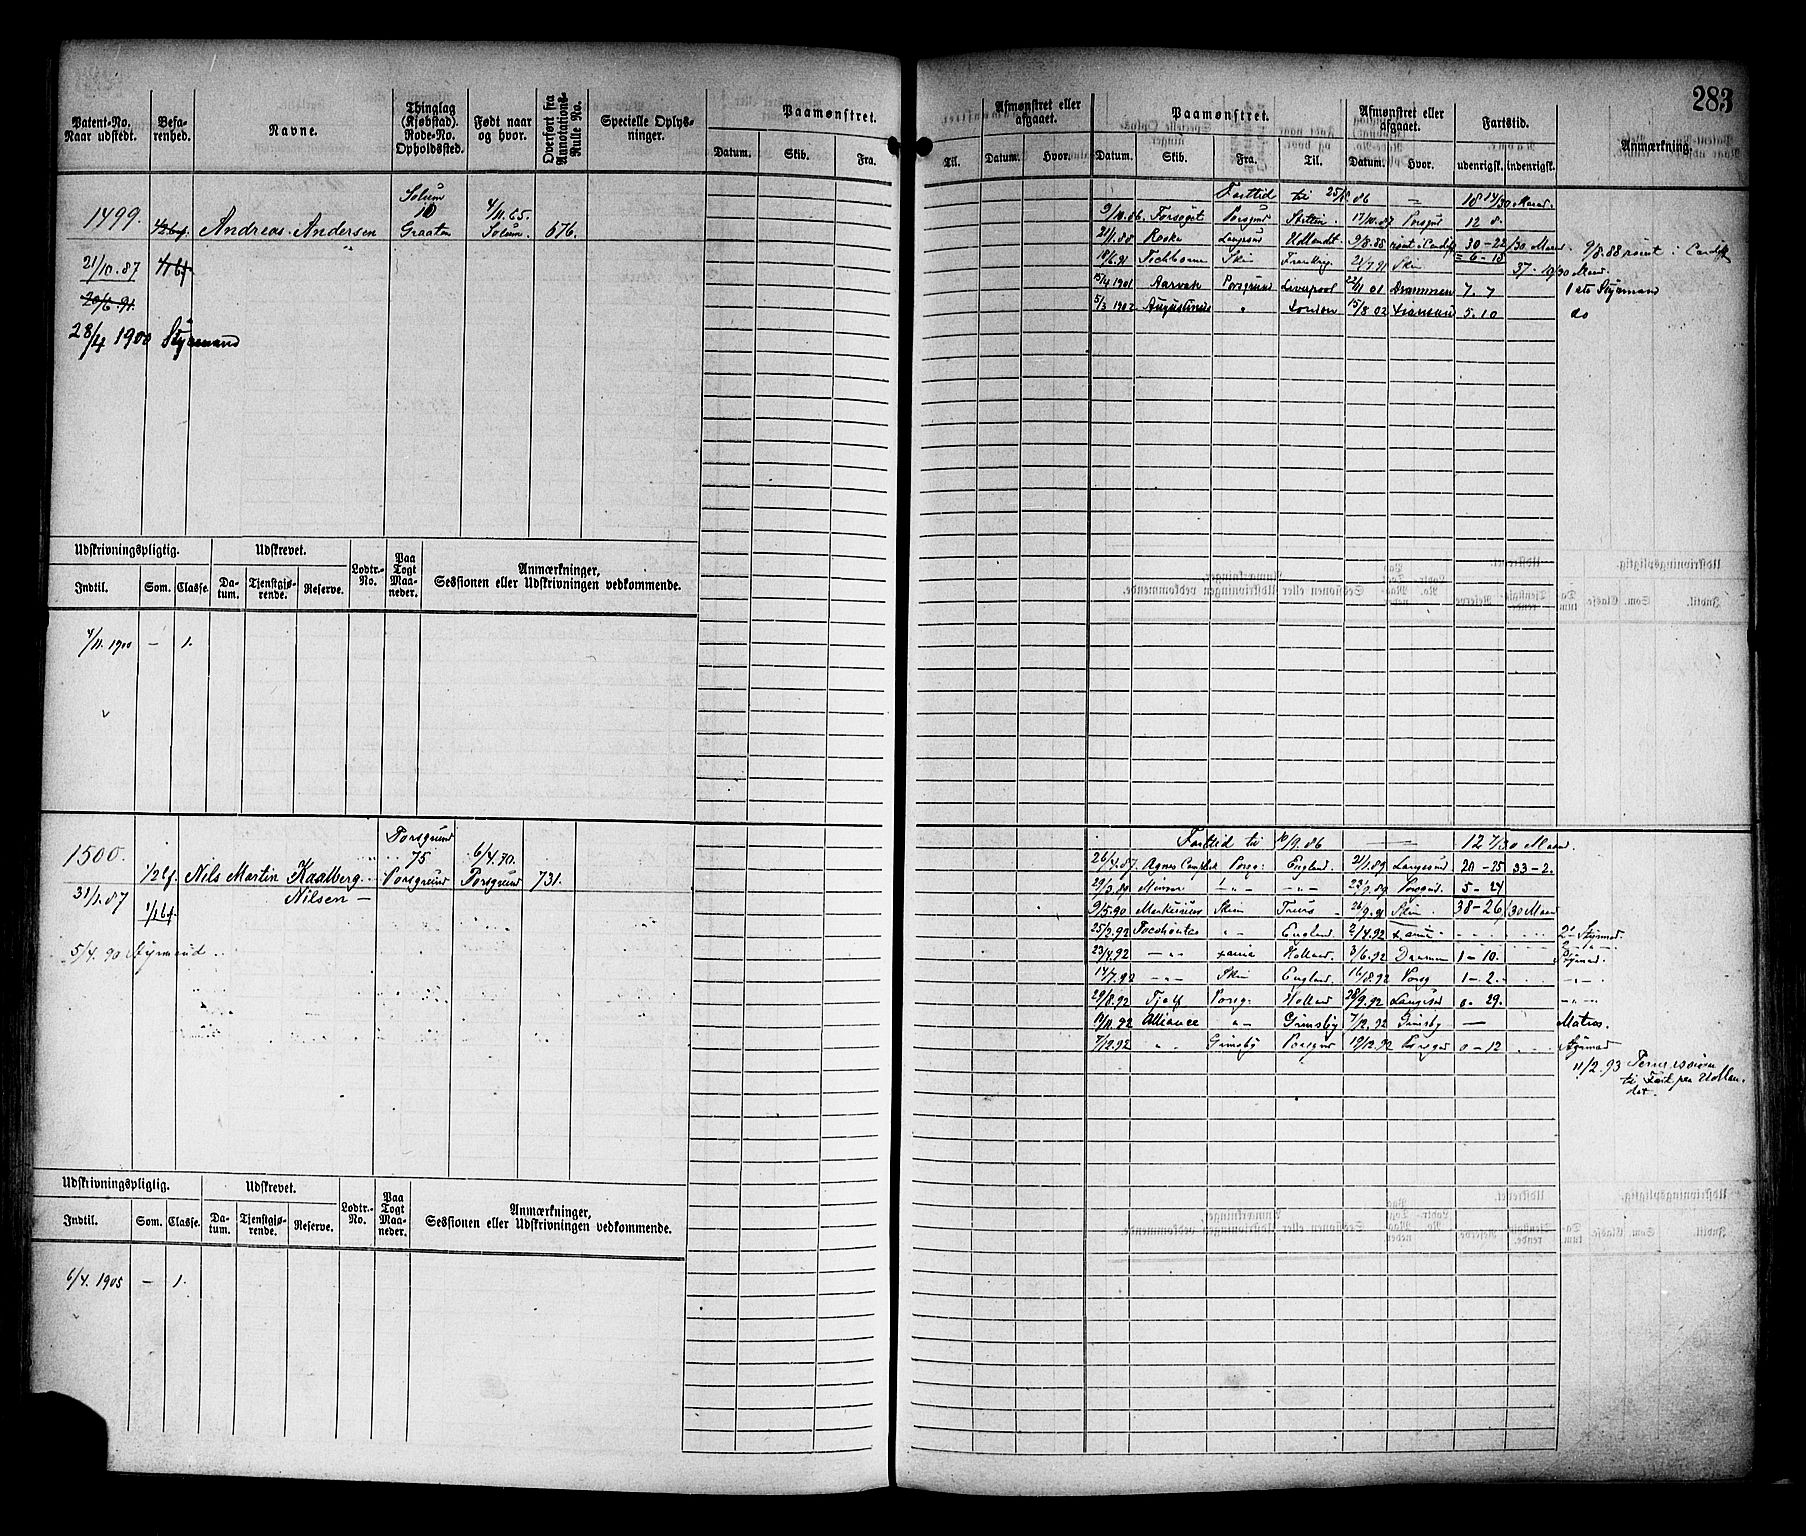 283
Patent-No. Naar udstedt. Befarenhed. Navne. Thinglag (Kjøbstad). Rode-No. Opholdssted. Født naar og hvor. Overført fra Annotations-Rulle No. Specielle Oplysninger. Paamønstret. Datum. Skib. Fra.
Til. Afmønstret eller afgaaet. Datum. Hvor. Paamønstret. Datum. Skib. Fra. Til. Afmønstret eller afgaaet. Datum. Hvor. Fartstid. udenrigsk. indenrigsk. Anmærkning.
1499. Andreas Andersen Solum 10 Graaten 4/11.65. Solum. 676.
21/10.87
20/6.91.
28/4 1900 Styrmand
Farttid til 86 18 14/30 Maaned.
9/10.86. Forsøget Porsgrund Stettin. 17/10.87 Porsgrund 12 8.
21/1.88 Langesund Udlandet. 9/8.88 rømt i Cardiff 30-22/30 Maaned 9/8.88 rømt i Cardiff
= 6-18
18/6.91 Skien Frankrig. 21/7 91 Skien 37-19/30 Maaned.
15/4 1901 Aarvak Porsgrund Liverpool 22/11 01 Drammen 7. 7 1ste Styrmand
5/3 1902 Augustinus " London 15/8 02 5.10 do
Udskrivningspligtig. Udskrevet. Lodtr.-No. Paa Togt Maaneder. Anmærkninger, Sessionen eller Udskrivningen vedkommende.
Indtil. Som. Classe. Datum. Tjenstgjørende. Reserve.
4/11.1900 — 1.
1500. 1/2 bf. Nils Martin Kaalberg Nilsen — Porsgrund 75 Porsgrund 6/4.70. Porsgrund 731.
31/1.87 1/1 bf.
5/4.90 Styrmand
Farttid til 10/9.86 — — 12 7/30 Maaned.
26/4.87. Agnes Campbell Porsg. England. 21/1.89 Langesund 20-25 33-2.
29/3.89 Minerva -"- -"- 22/9.89 Porsgrund. 5-24
9/5.90 Merkurius Skien 26/9.91 Skien. 38-26/30 Maaned
25/2.92 Pocohontas -"- England. 2/4.92 2' Styrmand.
23/4.92 -"- Xania Holland. 3/6.92 Drammen 1-10. Styrmand.
14/7.92 -"- Skien England. 16/8.92 Porsg 1-2. -"-
29/8.92 Tjalf Porsg. Holland 28/9.92 Langesund 0-29. -"-
12/11.92 Alliance -"- Grimsby 7/12.92 Grimsby — Matros.
7/12.92 " Grimsby Porsgrund 19/12.92 Porsgrund 0-12 Styrmand
11/2.93 Permission
til Fart paa Udlan-
det.
Udskrivningspligtig. Udskrevet. Lodtr.-No. Paa Togt Maaneder. Anmærkninger, Sessionen eller Udskrivningen vedkommende.
Indtil. Som. Classe. Datum. Tjenstgjørende. Reserve.
6/4.1905 — 1.